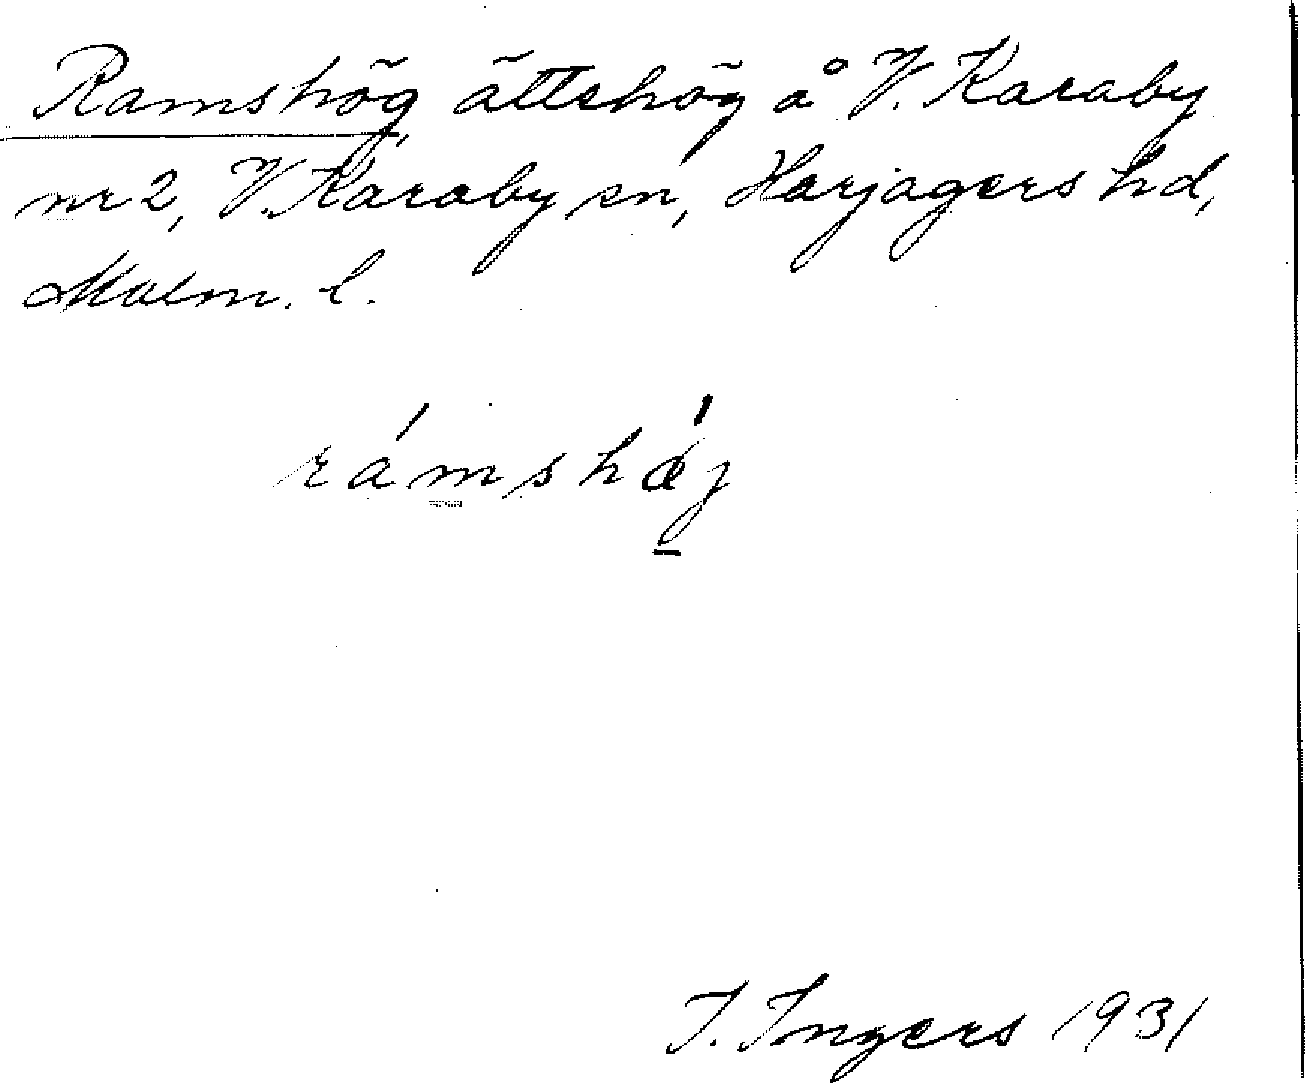 Ramshög, ättehög å V. Karaby
nr 2, V. Karaby sn, Harjagers hd,
Malm. l.
rámshǿj
I. Ingers 1931